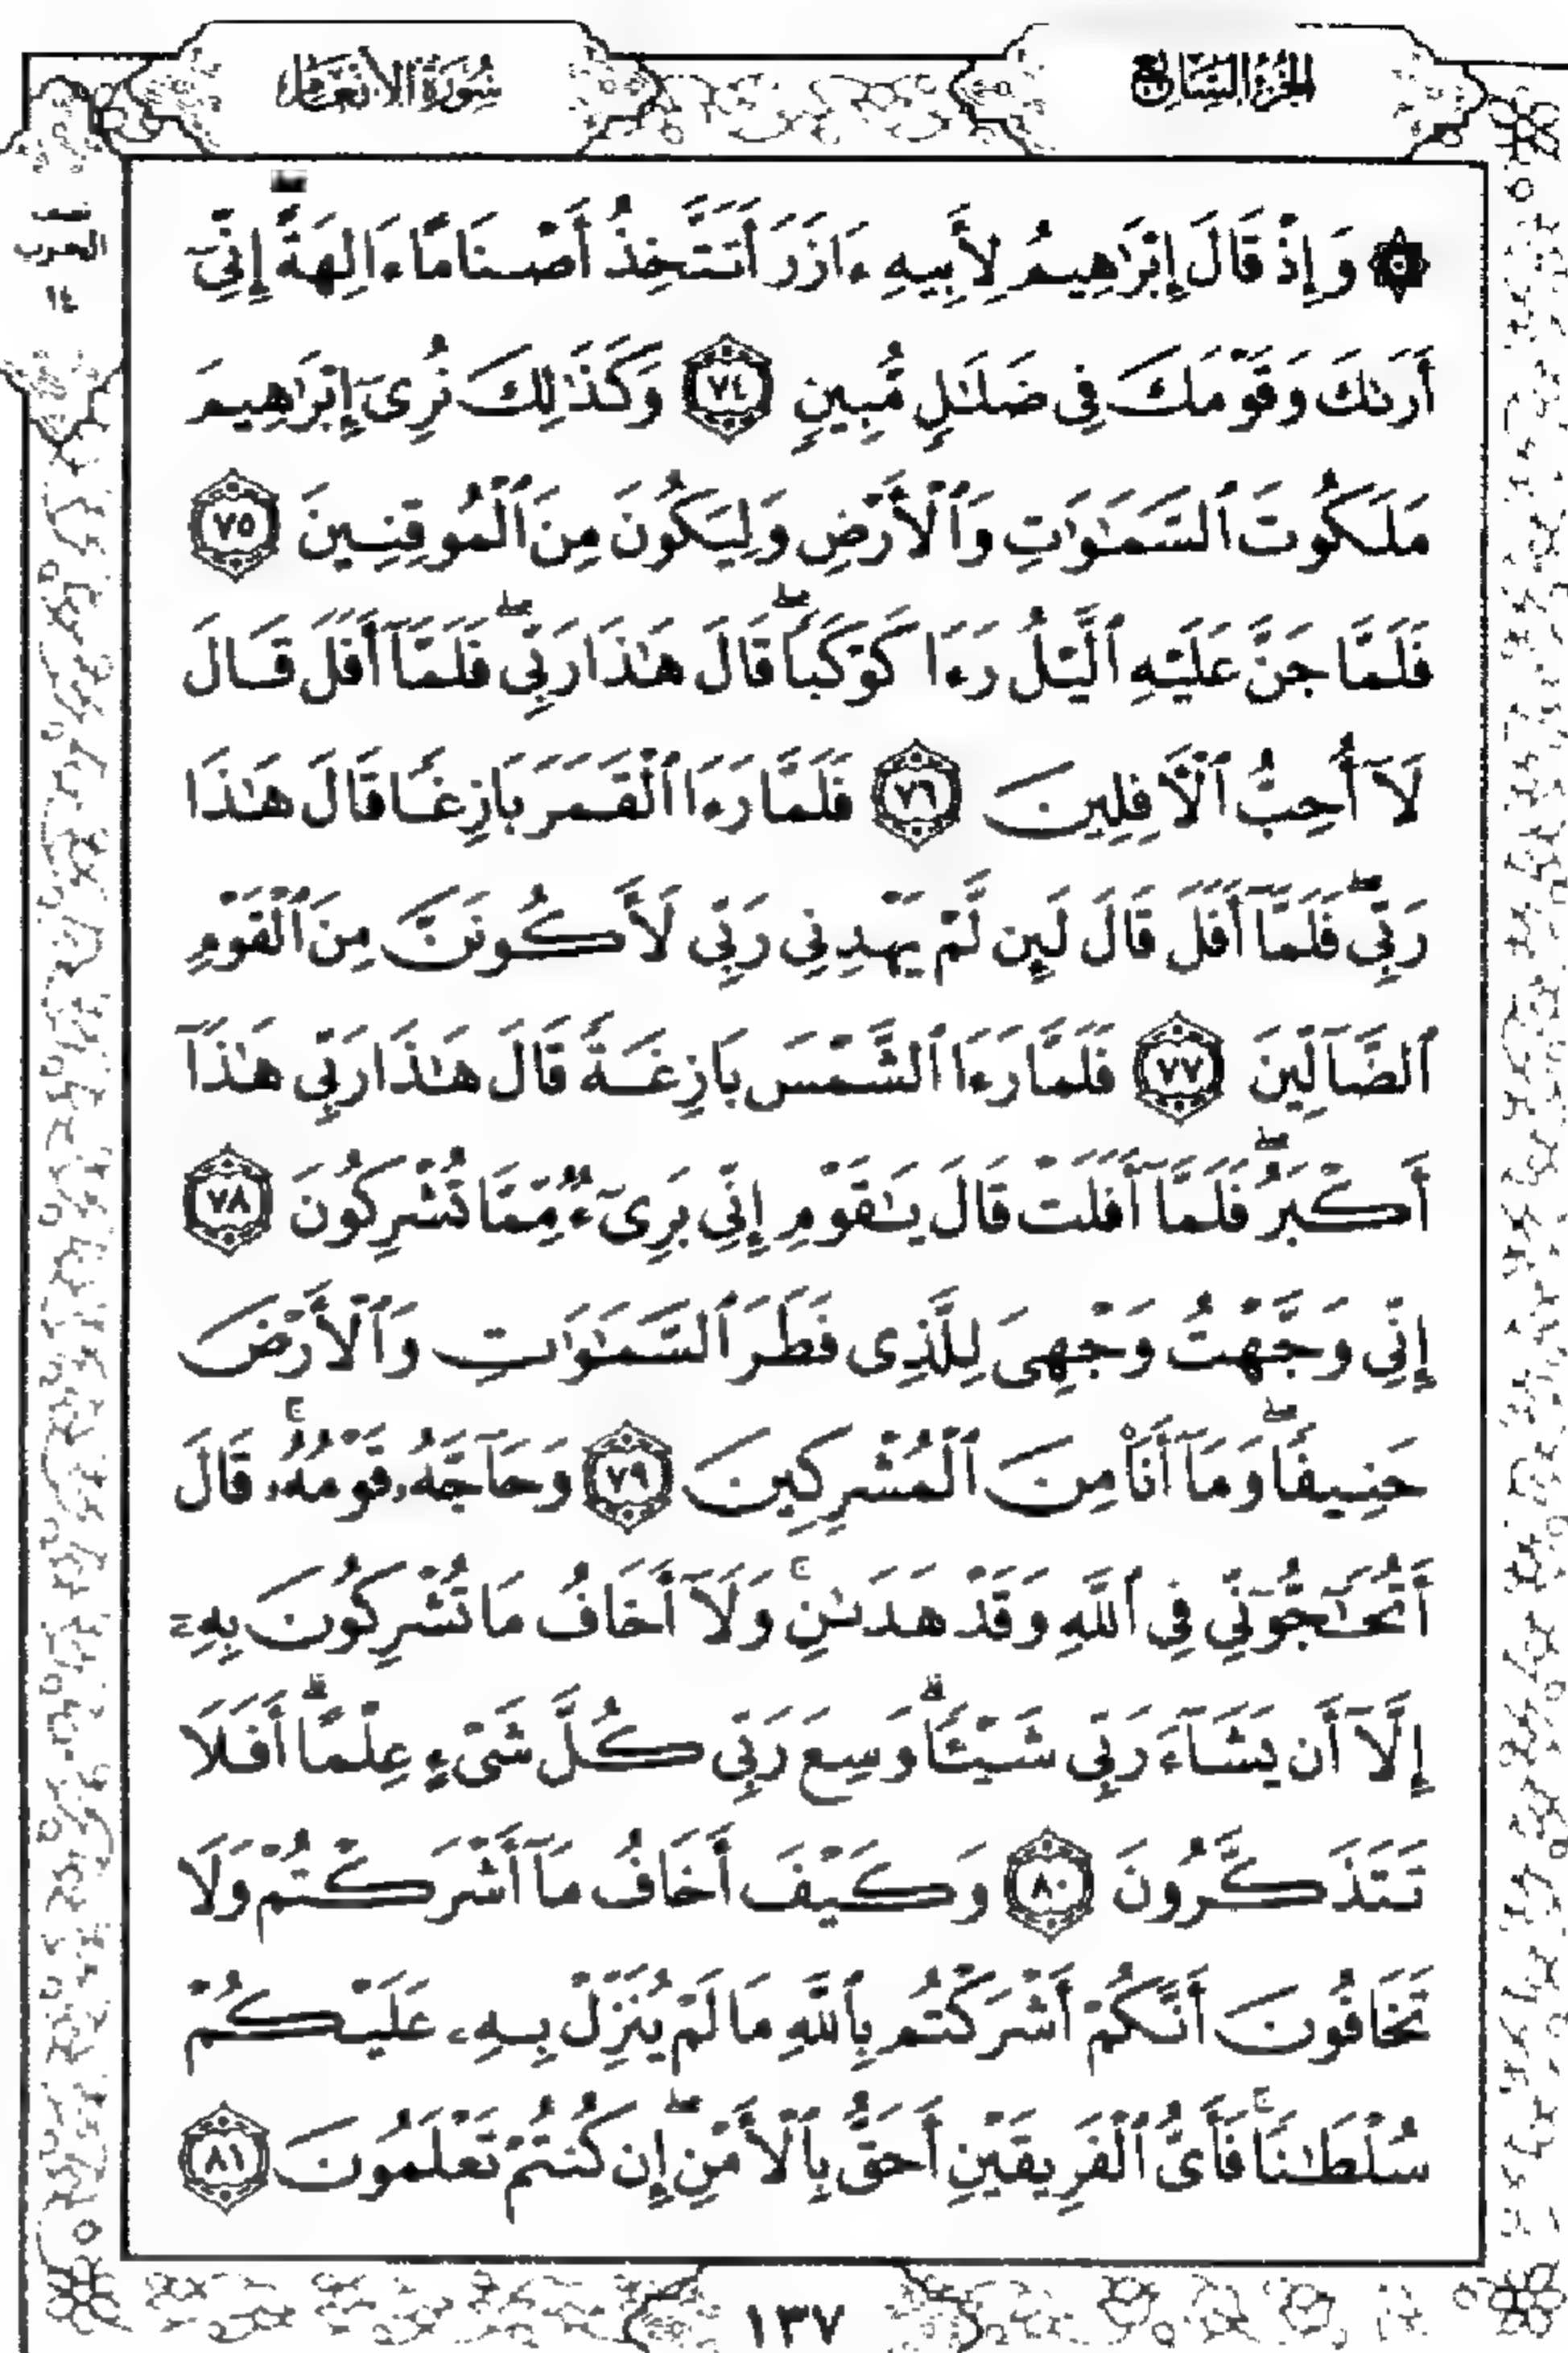 الجزء السابع
سورة الأنعام
الحزب
١٤
۞ وَإِذْ قَالَ إِبْرَٰهِيمُ لِأَبِيهِ ءَازَرَ أَتَتَّخِذُ أَصْنَامًا ءَالِهَةً ۖ إِنِّىٓ
أَرَىٰكَ وَقَوْمَكَ فِى ضَلَٰلٍ مُّبِينٍ ٧٤ وَكَذَٰلِكَ نُرِىٓ إِبْرَٰهِيمَ
مَلَكُوتَ ٱلسَّمَٰوَٰتِ وَٱلْأَرْضِ وَلِيَكُونَ مِنَ ٱلْمُوقِنِينَ ٧٥
فَلَمَّا جَنَّ عَلَيْهِ ٱلَّيْلُ رَءَا كَوْكَبًا ۖ قَالَ هَٰذَا رَبِّى ۖ فَلَمَّآ أَفَلَ قَالَ
لَآ أُحِبُّ ٱلْءَافِلِينَ ٧٦ فَلَمَّا رَءَا ٱلْقَمَرَ بَازِغًا قَالَ هَٰذَا
رَبِّى ۖ فَلَمَّآ أَفَلَ قَالَ لَئِن لَّمْ يَهْدِنِى رَبِّى لَأَكُونَنَّ مِنَ ٱلْقَوْمِ
ٱلضَّآلِّينَ ٧٧ فَلَمَّا رَءَا ٱلشَّمْسَ بَازِغَةً قَالَ هَٰذَا رَبِّى هَٰذَآ
أَكْبَرُ ۖ فَلَمَّآ أَفَلَتْ قَالَ يَٰقَوْمِ إِنِّى بَرِىٓءٌ مِّمَّا تُشْرِكُونَ ٧٨
إِنِّى وَجَّهْتُ وَجْهِىَ لِلَّذِى فَطَرَ ٱلسَّمَٰوَٰتِ وَٱلْأَرْضَ
حَنِيفًا ۖ وَمَآ أَنَا۠ مِنَ ٱلْمُشْرِكِينَ ٧٩ وَحَآجَّهُۥ قَوْمُهُۥ ۚ قَالَ
أَتُحَٰٓجُّوٓنِّى فِى ٱللَّهِ وَقَدْ هَدَىٰنِ ۚ وَلَآ أَخَافُ مَا تُشْرِكُونَ بِهِۦٓ
إِلَّآ أَن يَشَآءَ رَبِّى شَيْـًٔا ۗ وَسِعَ رَبِّى كُلَّ شَىْءٍ عِلْمًا ۗ أَفَلَا
تَتَذَكَّرُونَ ٨٠ وَكَيْفَ أَخَافُ مَآ أَشْرَكْتُمْ وَلَا
تَخَافُونَ أَنَّكُمْ أَشْرَكْتُم بِٱللَّهِ مَا لَمْ يُنَزِّلْ بِهِۦ عَلَيْكُمْ
سُلْطَٰنًا ۚ فَأَىُّ ٱلْفَرِيقَيْنِ أَحَقُّ بِٱلْأَمْنِ ۖ إِن كُنتُمْ تَعْلَمُونَ ٨١
١٣٧